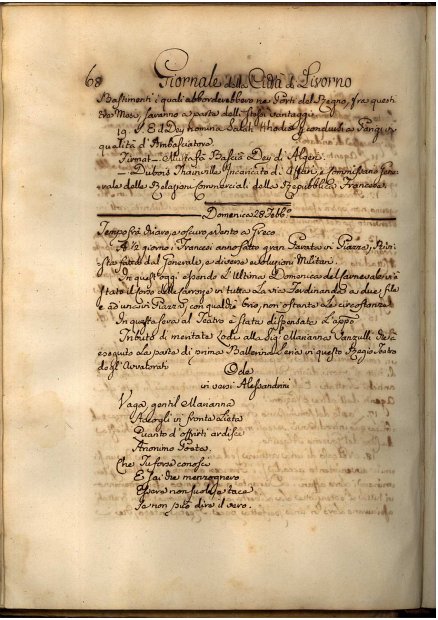 68 Giornale della Città di Livorno
Bastimenti i quali abborderebbero ne Porti del Regno, fra questi
due Mesi, saranno a parte delli stessi vantaggi.
19. S. E. il Dey nomina Salah
qualità d'Ambasciatore.
Firmat = Mustafà Bascià Dey di Algeri.
= Dubois Thainville Incaricato di Affari, e Commissario Gene-
rale delle Relazioni Commerciali della Repubblica Francese.
Domenica 28 Febb.º
Tempo frà chiaro, e oscuro, vento a Greco
A ½ giorno i Francesi anno fatto gran Parata in Piazza,
fatta dal Generale, e diverse evoluzioni Militari.
In quest'oggi essendo l'Ultima Domenica del Carnevale vi è
stato il corso delle Carrozze in tutta la via Ferdinanda a due file
e ad una in Piazza, con qualche brio, non ostante le circostanze.
In questa sera al Teatro è stata dispensata l'app.º
Tributo di meritata Lode alla Sig.ª Marianna Banzulli che à
eseguito la parte di prima Ballerina Seria in questo Regio Teatro
degl'Avvalorati
Ode
in versi Alessandrini
Vaga, gentil Marianna
Accogli in fronte lieta
Quanto d'offrirti ardisce
Anonimo Poeta.
Che Tu forse conosci
E sai che menzognero
Essere non suole, e tace
Se non può dire il vero.